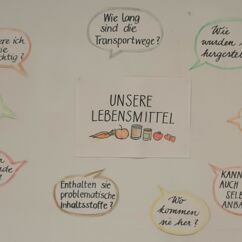 Wie lang
sind die
Transportwege?
Wie
wurden
hergestell
ere ich
ie
chtig?
UNSERE
LEBENSMITTEL
Enthalten sie
problematische
Inhaltsstoffe?
Wo
kommen
sie her?
KANN
AUCH
SELB
ANBA